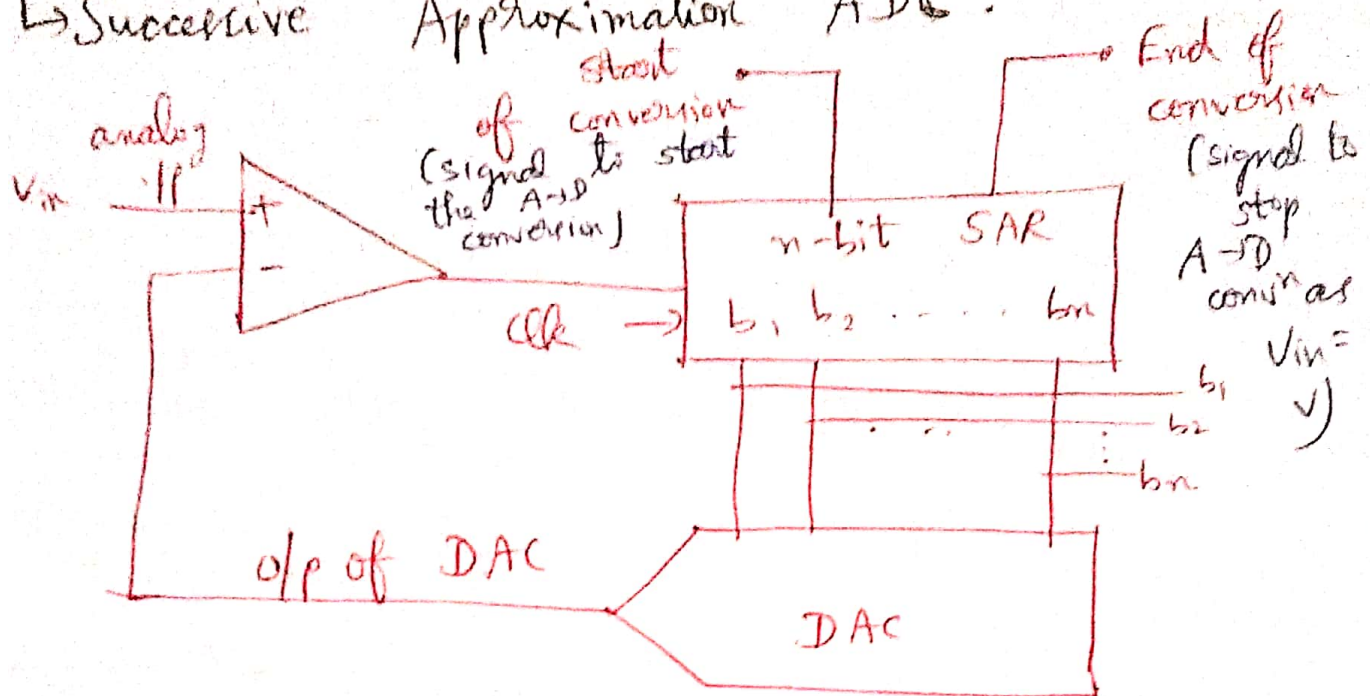 ↳ Successive Approximation ADC.
start
of conversion
(signal to start
the A→D
conversion)
End of
conversion
(signal to
stop
A→D
convⁿ as
Vin =
V)
analog
i/p
Vin
+
-
n-bit SAR
Clk →
b1 b2 ..... bn
b1
b2
bn
o/p of DAC
DAC